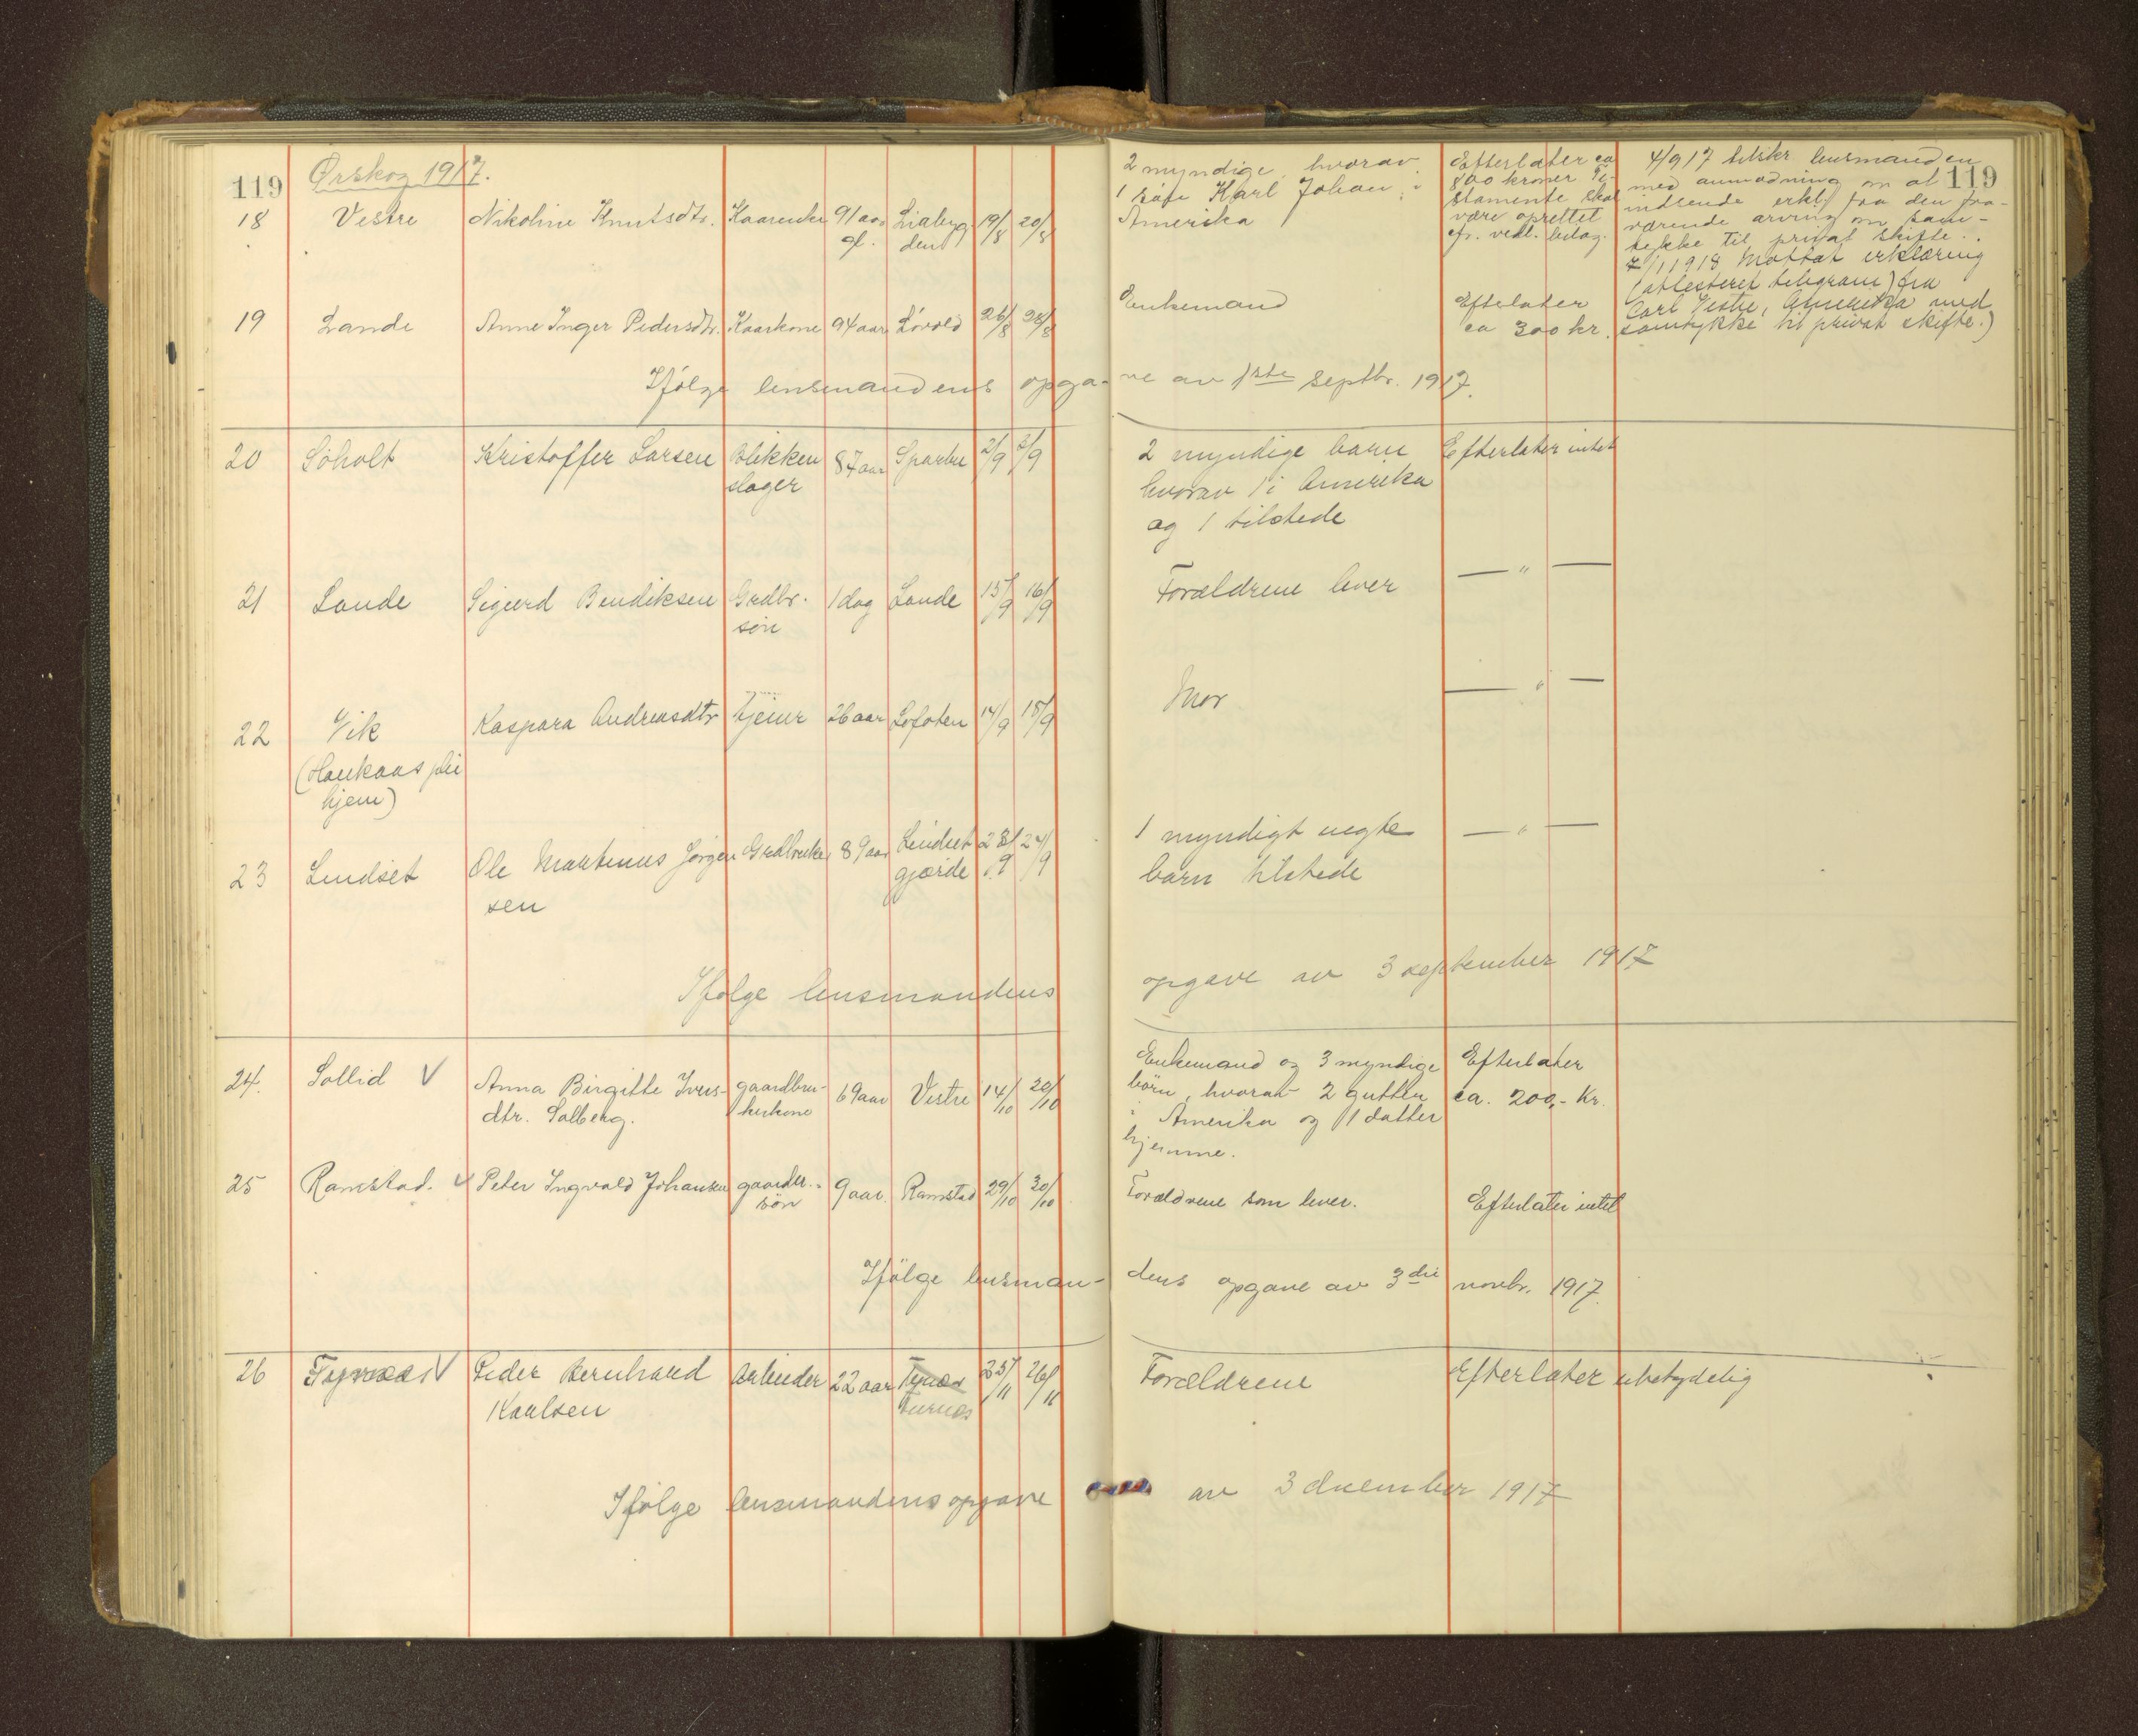 119 Ørskog 1917. 119
18 Vestre Nikoline Knutsdtr. Kaarenke 91 aar gl. Liabygden 19/8 20/8
2 myndige, hvorav
1 søn Karl Johan i
Amerika
Efterlater ca
800 kroner Te-
stamente skal
være oprettet
cfr. vedl. bilag.
4/9 17 tilskr lensmanden
med anmodning om at
indsende erkl. fra den fra-
værende arving om sam-
tykke til privat skifte.
7/1 1918 Mottat erklæring
(attesteret telegram) fra
Carl Vestre, Amerika med
samtykke til privat skifte.)
19 Lande Anne Inger Pedersdtr. Kaarkone 94 aar Løvold 26/8 28/8
Enkemand
Efterlater
ca 300 kr.
Ifølge lensmandens opga-ve av 1ste septbr. 1917.
20 Søholt Kristoffer Larsen Blikken 87 aar Sparbu 2/9 3/9
slager
2 myndige barn Efterlater intet
hvorav 1 i Amerika
og 1 tilstede
21 Lande Sigurd Bendiksen Grdbr. 1 dag Lande 15/9 16/9
søn
Forældrene lever — " —
22 Vik Kaspara Andreasdtr tjener 26 aar Lofoten 14/9 18/9
(Haukaas plei
hjem)
Mor — " —
23 Lindset Ole Martinus Jørgen Grdbruker 89 aar Lindset 23/9 24/9
sen gjærde
1 myndigt uegte — " —
barn tilstede
Ifølge lensmandens opgave av 3 september 1917
24. Sollid V Anna Birgitte Ivers- gaardbru- 69 aar Vestre 14/10 20/10
dtr. Solberg. kerkone
Enkemand og 3 myndige Efterlater
börn, hvorav 2 gutter ca. 200,- kr.
i Amerika og 1 datter
hjemme.
25 Ramstad. V Peter Ingvald Johansen gaardbr.- 9 aar. Ramstad 29/10 30/10
sön
Forældrene som lever. Efterlater intet
Ifölge lensman-dens opgave av 3die novbr. 1917.
26 V Peder Bernhard Arbeider 22 aar 25/11 26/11
Karlsen Furnes
Forældrene Efterlater ubetydelig
Ifølge lensmandens opgave av 3 december 1917